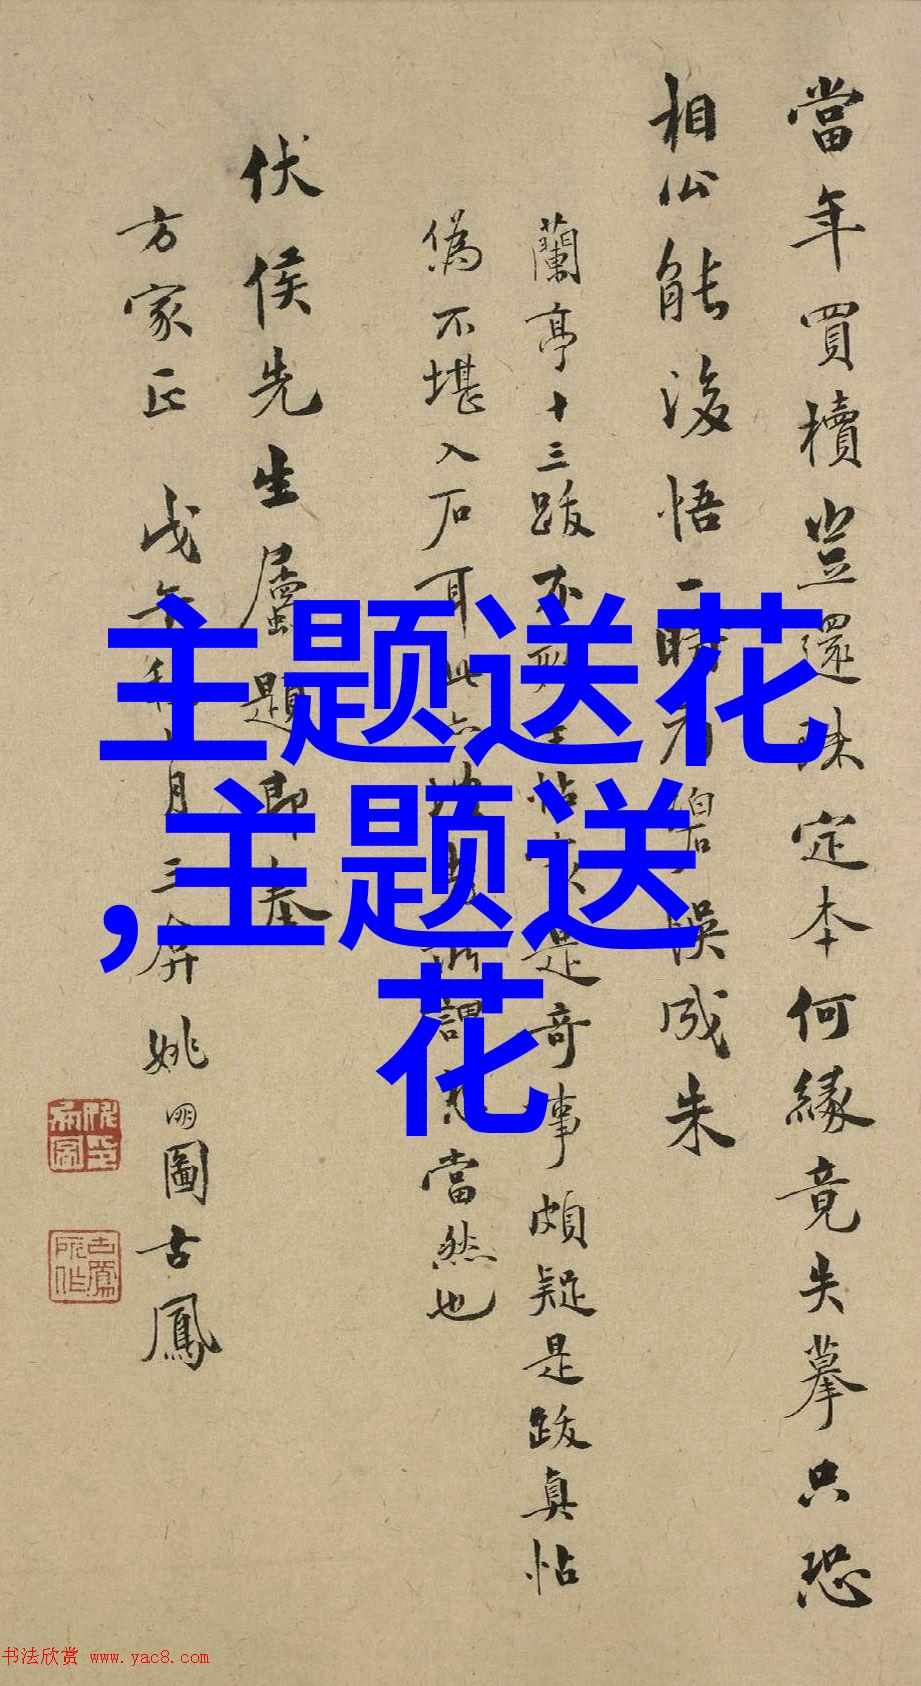 當年買櫝豈還珠定本何緣竟失摹只恐
相公能後悟一時
誤成朱
蘭亭十三跋不
帖
是奇事頗疑是跋真帖
偽不堪入石耳此
謂
當然也
伏侯先生屬題即奉
方家正戊午
月三屏姚
圖古鳳
主题送花
,主题送
花
书法欣赏 www.yac8.com